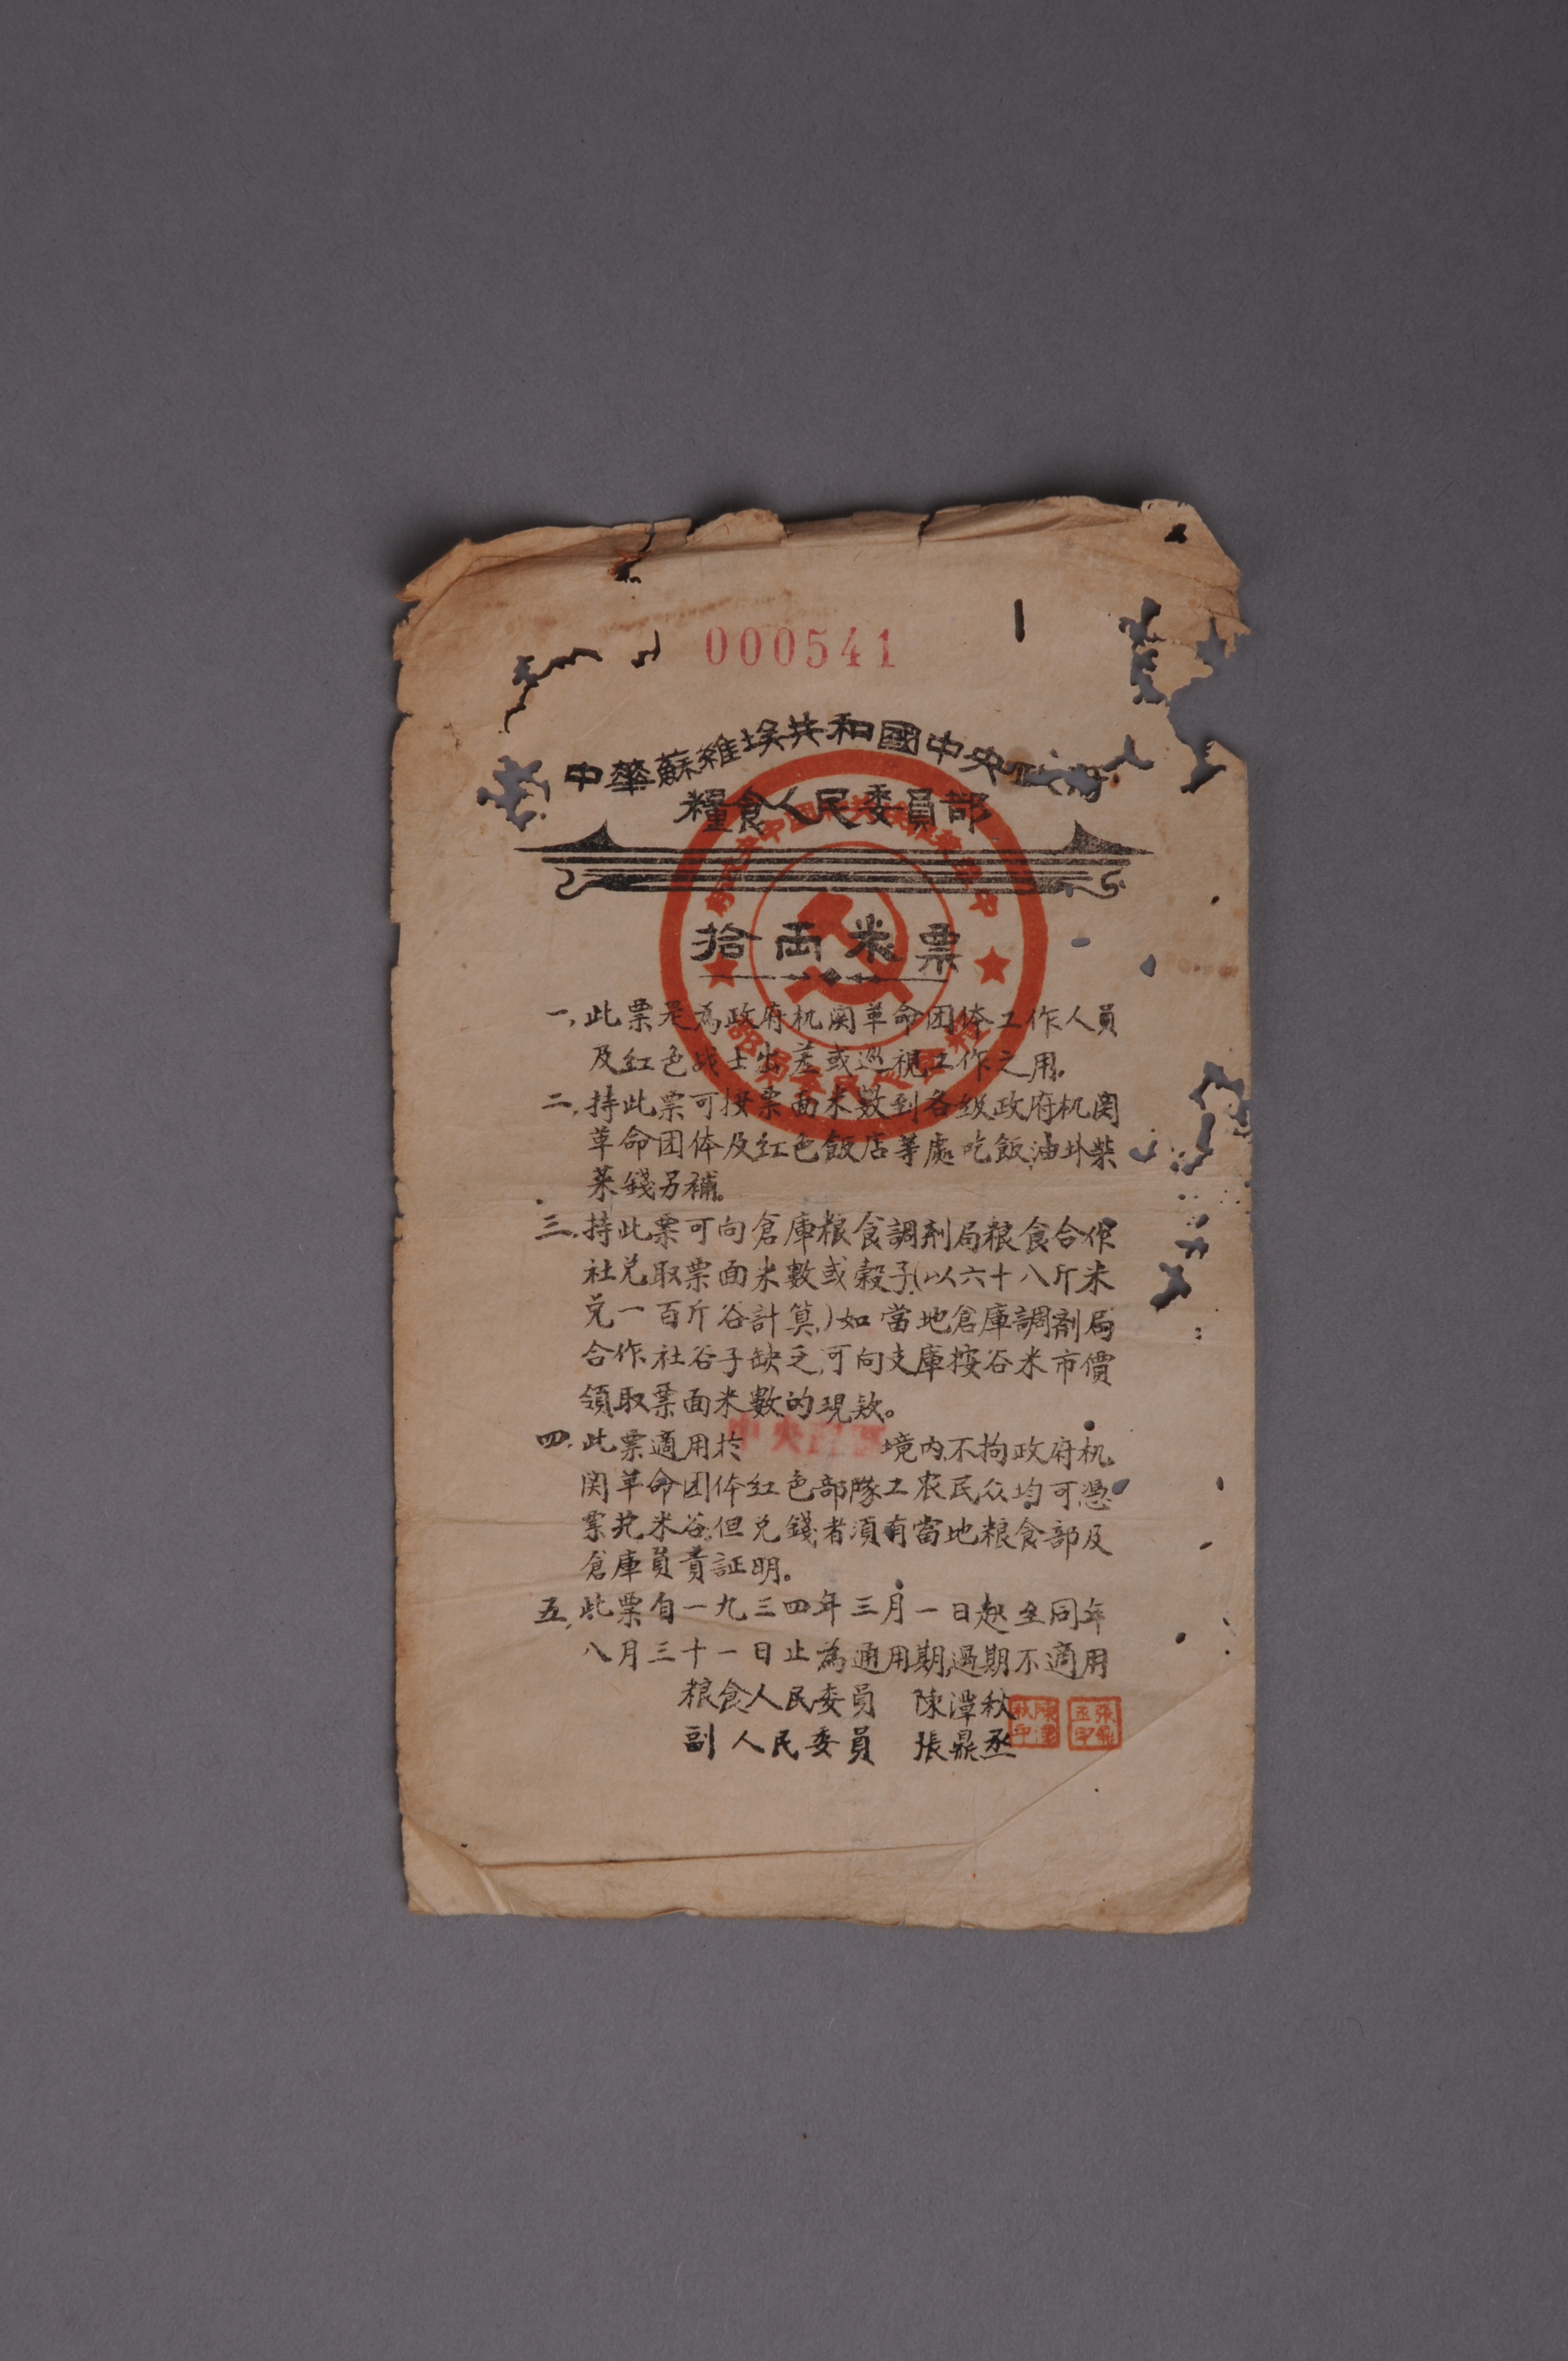 000541
中華蘇維埃共和國中央
糧食人民委員部
拾両米票
一,此票是為政府机関革命团体工作人員
及红色战士出差或巡視工作之用。
二,持此票可按票面米數到各级政府机関
革命团体及红色飯店等處吃飯,油外柴
菜錢另補。
三,持此票可向倉庫粮食調剂局粮食合作
社兑取票面米數或穀子(以六十八斤米
兑一百斤谷計算,)如當地倉庫調剂局
合作社谷子缺乏,可向支庫按谷米市價
領取票面米數的現欵。
四,此票適用扵中央 境内,不拘政府机
関革命团体红色部隊工农民众均可憑
票兑米谷,但兑錢者須有當地粮食部及
倉庫負責証明。
五,此票自一九三四年三月一日起至同年
八月三十一日止為通用期,過期不適用
粮食人民委員 陳潭秋
副人民委員 張鼎丞
陳潭秋印
張鼎丞印